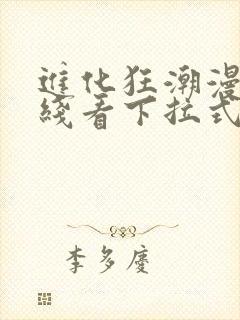 進化狂潮漫
綫看下拉式
李多慶